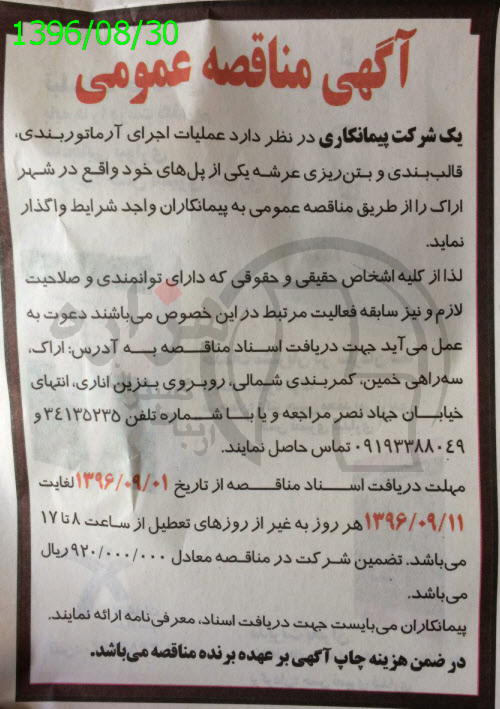 1396/08/30
آگهی مناقصه عمومی
یک شرکت پیمانکاری در نظر دارد عملیات اجرای آرماتوربندی،
قالب‌بندی و بتن‌ریزی عرشه یکی از پل‌های خود واقع در شهر
اراک را از طریق مناقصه عمومی به پیمانکاران واجد شرایط واگذار
نماید.
لذا از کلیه اشخاص حقیقی و حقوقی که دارای توانمندی و صلاحیت
لازم و نیز سابقه فعالیت مرتبط در این خصوص می‌باشند دعوت به
عمل می‌آید جهت دریافت اسناد مناقصه به آدرس: اراک،
سه‌راهی خمین، کمربندی شمالی، روبروی بنزین اناری، انتهای
خیابان جهاد نصر مراجعه و یا با شماره تلفن ۳۴۱۳۵۲۳۵ و
۰۹۱۹۳۳۸۸۰۴۹ تماس حاصل نمایند.
مهلت دریافت اسناد مناقصه از تاریخ ۱۳۹۶/۰۹/۰۱ لغایت
۱۳۹۶/۰۹/۱۱ هر روز به غیر از روزهای تعطیل از ساعت ۸ تا ۱۷
می‌باشد. تضمین شرکت در مناقصه معادل ۹۲۰/۰۰۰/۰۰۰ ریال
می‌باشد.
پیمانکاران می‌بایست جهت دریافت اسناد، معرفی‌نامه ارائه نمایند.
در ضمن هزینه چاپ آگهی بر عهده برنده مناقصه می‌باشد.